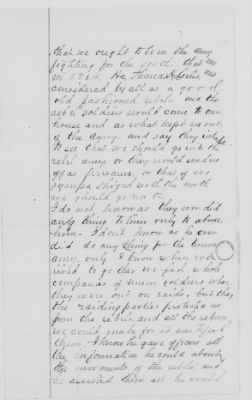 that we ought to be in the army
fighting for the south that was
in 1864. He Thomas was
considered by all as a good
old fashioned rebel and the
rebel soldiers would come to our
house and as what kept us out
of the Army and say they
to see that we should go into the
rebel army or they would send us
off as prisoners, or that if we
sympathized with the north
we should go north
I do not know as they ever did
any thing to him only to abuse
him. I don't know as he ever
did do any thing for the Union
army, only I know when we
lived to go that we fed whole
companies of union soldiers when
they were out on raids, but they
the raiding parties protected us
from the rebels and all the return
we could make for it was to feed
them. I know he gave officers all
the information he could about
the movements of the rebels, and
we assisted them all he could